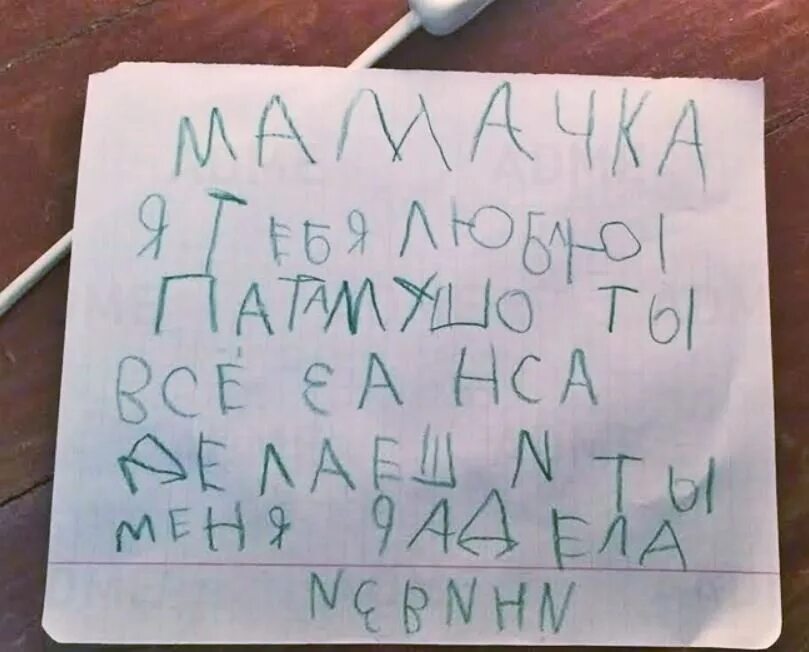 МАМАЧКА
Я ТЕБЯ ЛЮБЛЮ
ПАТАМУШО ТЫ
ВСЁ ЗА НСА
ДЕЛАЕШ И ТЫ
МЕНЯ ЯАДЕЛА
ИЗВИНИ